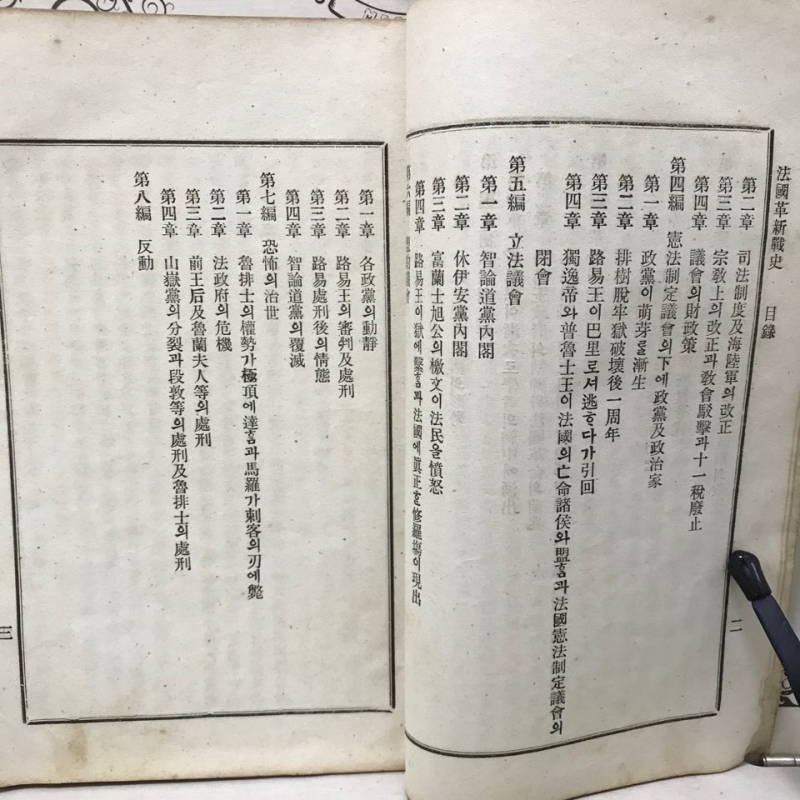 法國革新戰史 目錄
第二章 司法制度及海陸軍의改正
第三章 宗敎上의改正과敎會駁擊과十一稅廢止
第四章 議會의財政策
第四編 憲法制定議會의下에政黨及政治家
第一章 政黨이萌芽를漸生
第二章 排樹脫牢獄破壞後一周年
第三章 路易王이巴里로셔逃ᄒᆞ다가引回
第四章 獨逸帝와普魯士王이法國의亡命諸侯와盟ᄒᆞᆷ과法國憲法制定議會의
閉會
第五編 立法議會
第一章 智論道黨內閣
第二章 休伊安黨內閣
第三章 富蘭士旭公의檄文이法民을憤怒
第四章 路易王이獄에繫ᄒᆞᆷ과法國에眞正ᄒᆞᆫ修羅場이現出
二
第一章 各政黨의動靜
第二章 路易王의審判及處刑
第三章 路易處刑後의情態
第四章 智論道黨의覆滅
第七編 恐怖의治世
第一章 魯排士의權勢가極項에達ᄒᆞᆷ과馬羅가刺客의刃에斃
第二章 法政府의危機
第三章 前王后及魯蘭夫人等의處刑
第四章 山嶽黨의分裂과段敦等의處刑及魯排士의處刑
第八編 反動
三